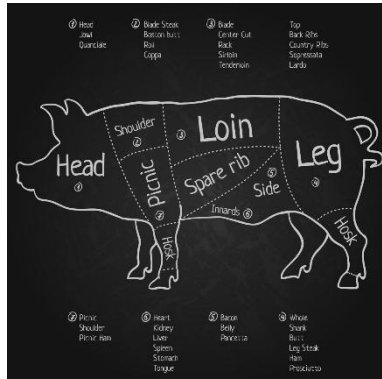 ① Head
Jowl
Guanciale
② Blade Steak
Boston butt
Roll
Coppa
③ Blade
Center Cut
Rack
Sirloin
Tenderloin
Top
Back Ribs
Country Ribs
Sopressata
Lardo
Shoulder
②
③
Loin
Head
①
Picnic
⑦
Spare rib
Side
⑤
Leg
④
Innards ⑥
Hosk
Hosk
⑦ Picnic
Shoulder
Picnic Ham
⑥ Heart
Kidney
Liver
Spleen
Stomach
Tongue
⑤ Bacon
Belly
Pancetta
④ Whole
Shank
Butt
Leg Steak
Ham
Prosciutto